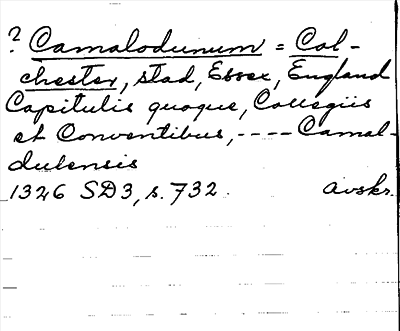 ? Camalodunum = Col-
chester, stad, Essex, England
Capitulis quoque, Collegiis
et Conventibus, ---- Camal-
dulensis
1326 SD3, s. 732. avskr.